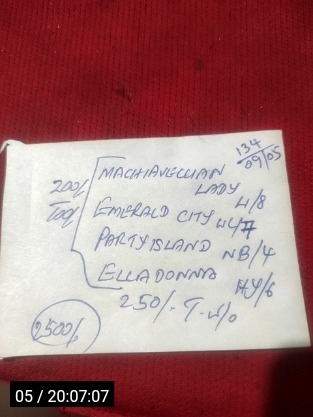 134
09/05
200/-
MACHIAVELLIAN
LADY 4/8
EMERALD CITY
PARTY ISLAND NB/4
ELLADONNA
250/-
2500/-
05 / 20:07:07